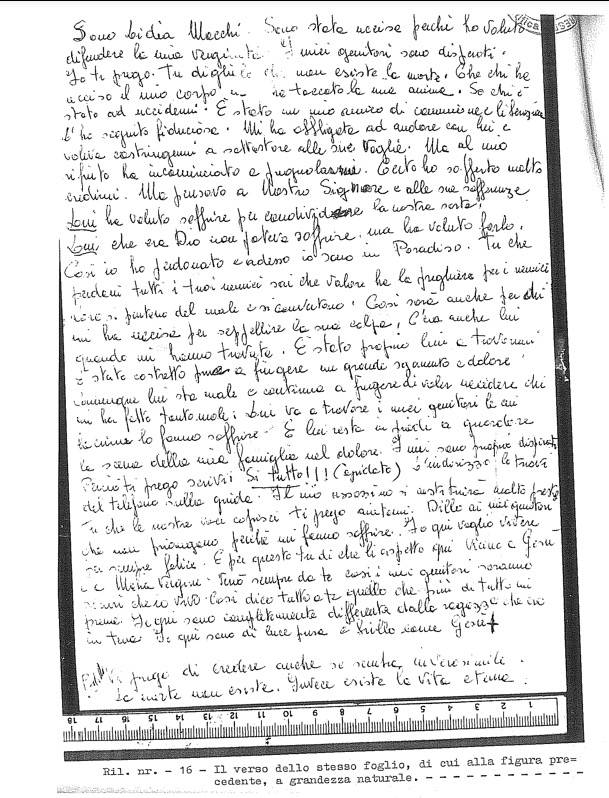 Sono Lidia Macchi. Sono stata uccisa perché ho voluto
difendere la mia verginità. I miei genitori sono disperati.
Io ti prego. Tu digli che non esiste la morte. Che chi ha
ucciso il mio corpo ha toccato la mia anima. So chi è
stato ad uccidermi. È stato un mio amico di comunione e liberazione
L'ho seguito fiduciosa. Mi ha obbligata ad andare con lui e
voleva costringermi a sottostare alle sue voglie. Ma al mio
rifiuto ha incominciato a pugnalarmi. Certo ho sofferto molto
credimi. Ma pensavo a Nostro Signore e alle sue sofferenze
Lui ha voluto soffrire per condividere la nostra sorte.
Lui che era Dio non poteva soffrire, ma ha voluto farlo.
Così io ho perdonato e adesso io sono in Paradiso. Tu che
perdoni tutti i tuoi nemici sai che valore ha la preghiera per i nemici
pentono del male e si convertono. Così sarà anche per chi
mi ha uccisa per seppellire la sua colpa. C'era anche lui
quando mi hanno trovata. È stato proprio lui a trovarmi
è stato costretto a fingere un grande sgomento e dolore
comunque lui sta male e continua a fingere di voler uccidere chi
mi ha fatto tanto male. Lui va a trovare i miei genitori le cui
lacrime lo fanno soffrire. E lui resta in piedi a guardare
la scena della mia famiglia nel dolore. I miei sono proprio disperati
Perciò ti prego scrivi Sì tutto!!! (capiolate) l'indirizzo lo trovi
del telefono sulla guida. Il mio assassino si costituirà molto presto
Tu che le nostre voci capisci ti prego aiutami. Dillo ai miei genitori
che non piangano perché mi fanno soffrire. Io qui voglio vivere
sempre felice. E per questo tu di che li aspetto qui vicino a Gesù
e a Maria Vergine. Tanti sempre da te così i miei genitori saranno
sicuri che io vivo. Così dico tutto a te quello che più di tutto mi
preme. Io qui sono completamente differente dalla ragazza che ero
in terra. Io qui sono di luce pura e brillo come Gesù

Vi prego di credere anche se sembra inverosimile.
La morte non esiste. Invece esiste la vita eterna.
18 17 16 15 14 13 12 11 10 9 8 7 6 5 4 3 2 1
Ril. nr. - 16 - Il verso dello stesso foglio, di cui alla figura pre=
cedente, a grandezza naturale. - - - - - - - - - - -